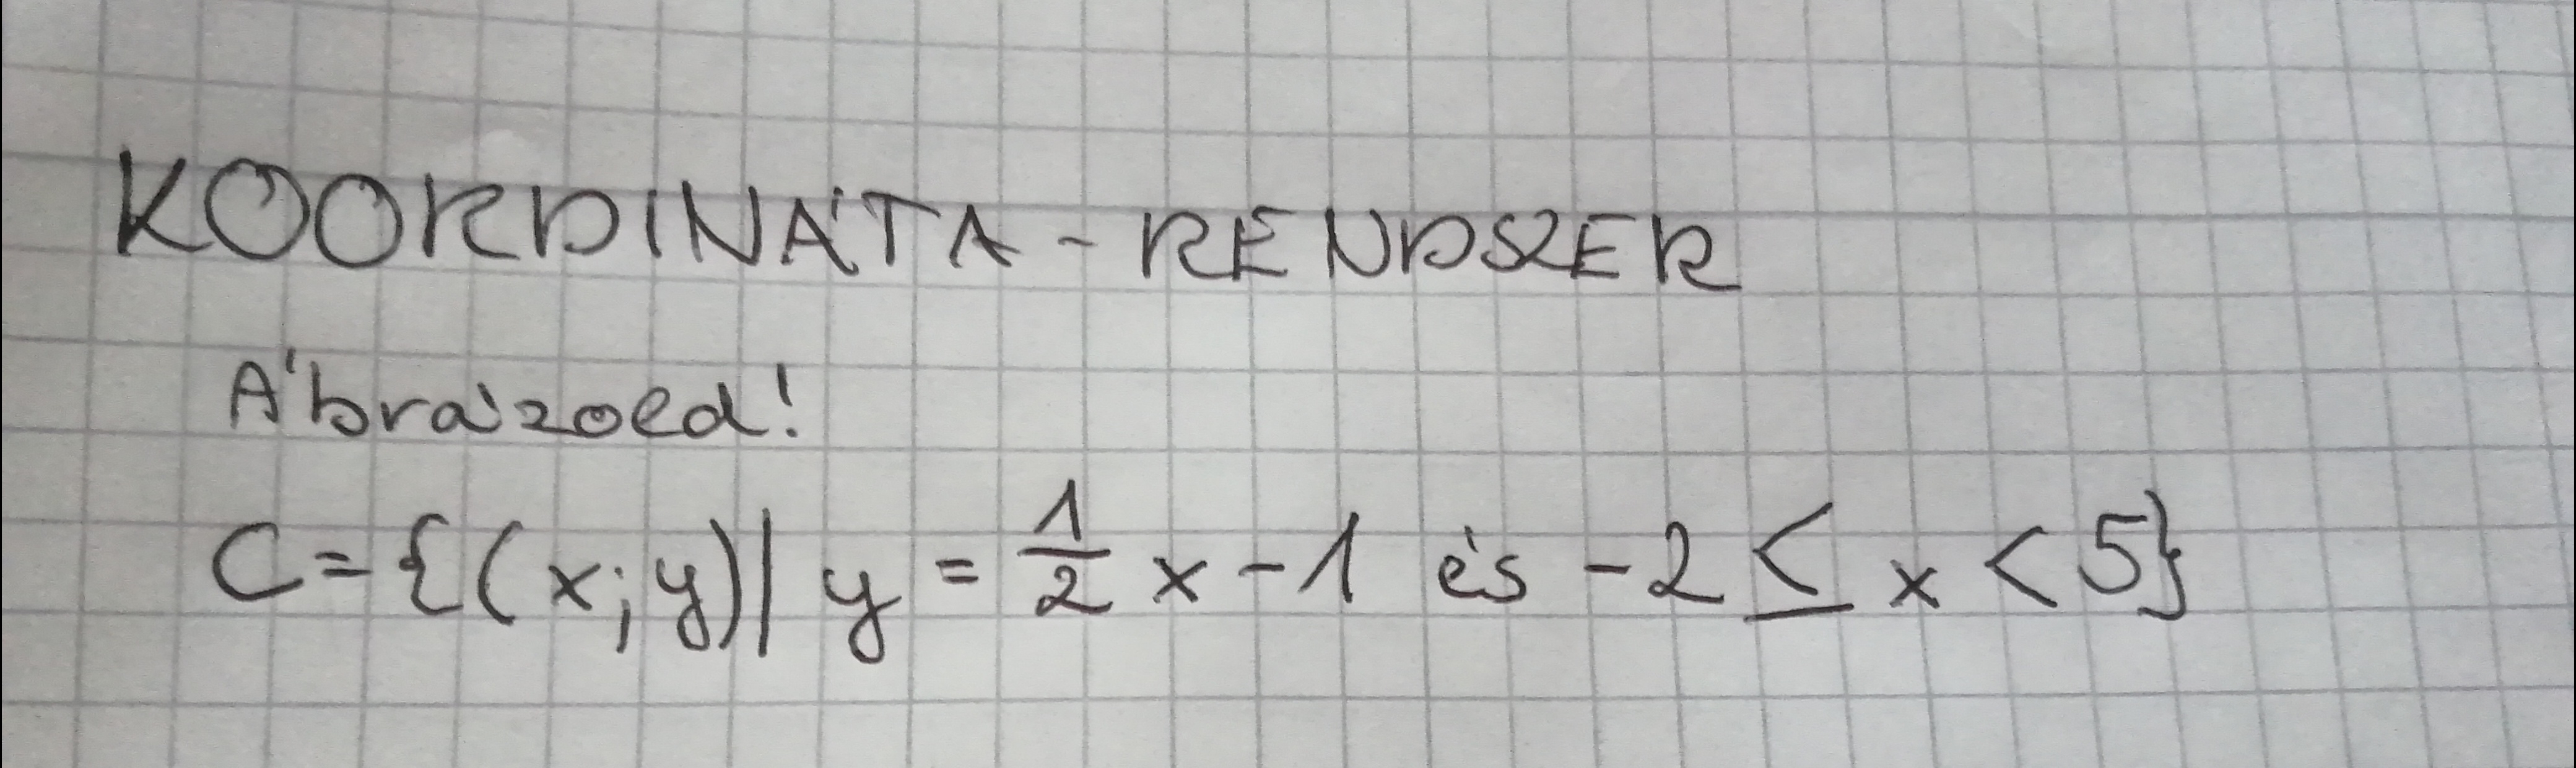 KOORDINÁTA-RENDSZER
Ábrázold!
C={(x;y)| y = 1/2 x - 1 és -2 ≤ x < 5}